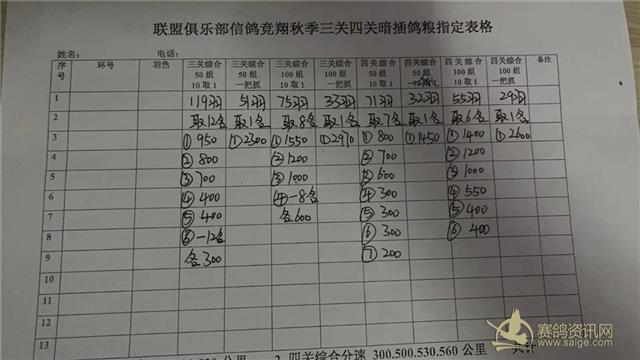 联盟俱乐部信鸽竞翔秋季三关四关暗插鸽粮指定表格
姓名： 电话：
序号 环号 羽色 三关综合 50 组 10 取 1 三关综合 50 组 一把抓 三关综合 100 组 10 取 1 三关综合 100 组 一把抓 四关综合 50 组 10 取 1 四关综合 50 组 四关综合 100 组 10 取 1 四关综合 100 组 一把抓 备注
1 119羽 51羽 75羽 33羽 71羽 32羽 55羽 29羽
2 取12名 取1名 取8名 取1名 取7名 取1名 取6名 取1名
3 ①950 ①2300 ①1550 ①2970 ①800 ①1450 ①1400 ①2600
4 ②800 ②1200 ②700 ②1200
5 ③700 ③1000 ③600 ③1000
6 ④400 ④-8名 ④300 ④550
7 ⑤400 各600 ⑤300 ⑤400
8 ⑥-12名 ⑥300 ⑥400
9 各300 ⑦200
10
11
12
13
2、四关综合分速 300.500.530.560 公里
赛鸽资讯网
www.saige.com